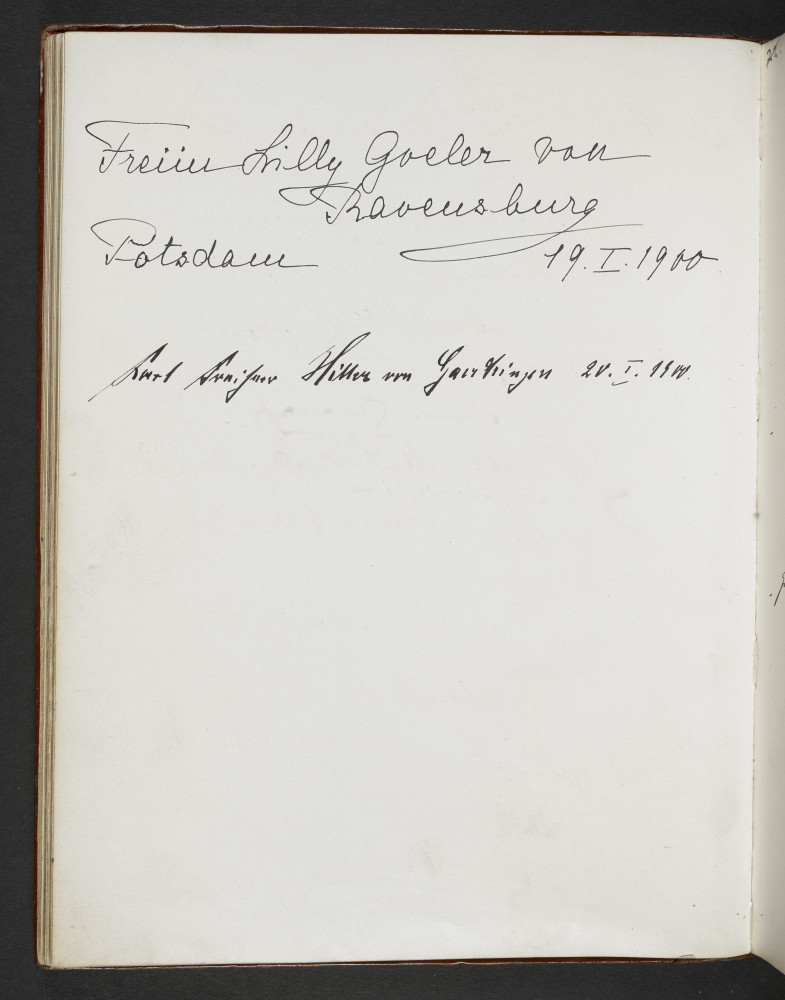 Freiin Lilly Goeler von
Ravensburg
Potsdam 19. I. 1900
Kurt Freiherr Hiller von Gaertringen 20. I. 1900.